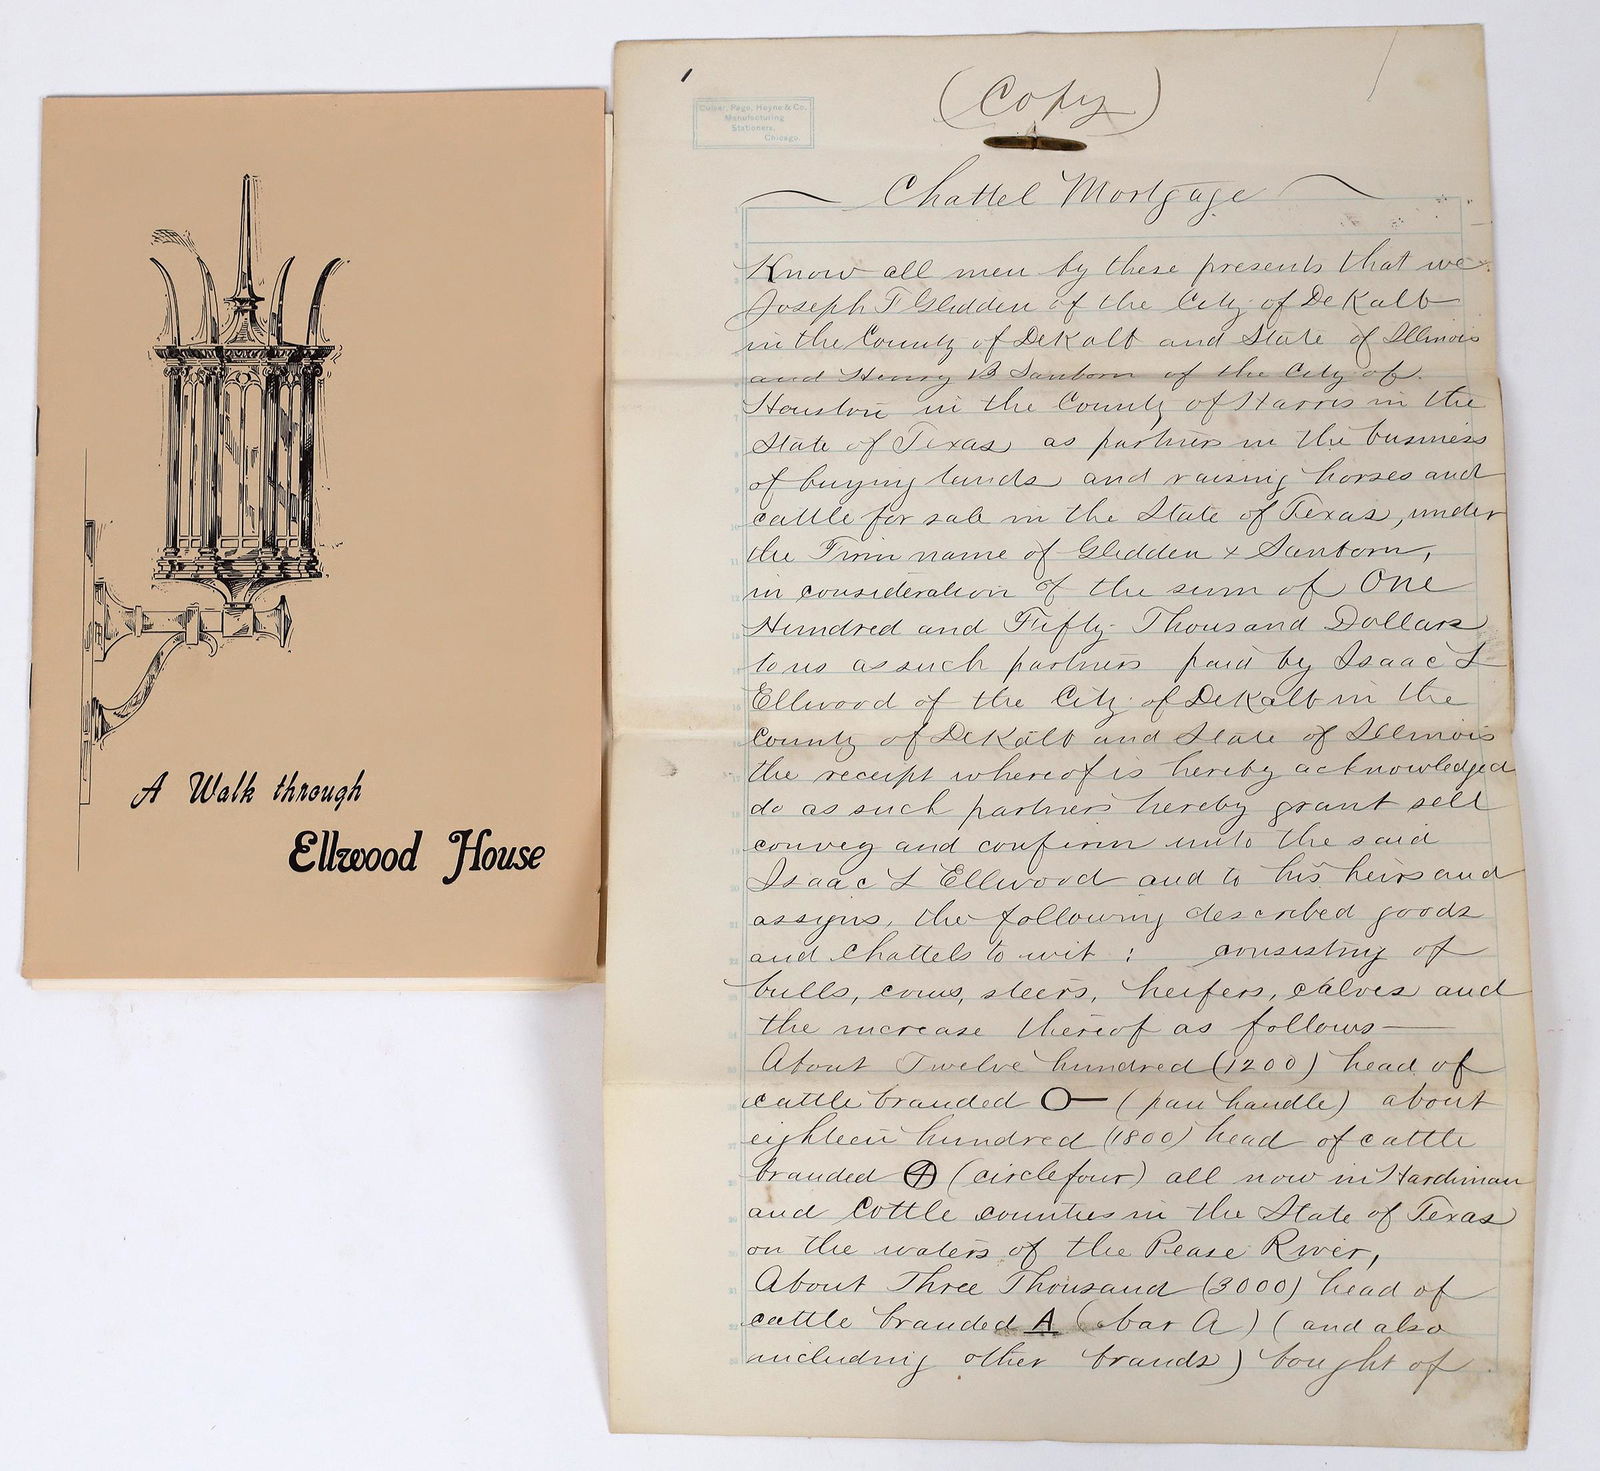 A Walk through
Ellwood House
Culver, Page, Hoyne & Co.
Manufacturing
Stationers,
Chicago.
(Copy)
Chattel Mortgage
Know all men by these presents that we
Joseph F Glidden of the City of DeKalb
in the County of DeKalb and State of Illinois
and Henry B Sanborn of the City of
Houston in the County of Harris in the
State of Texas as partners in the business
of buying lands and raising horses and
cattle for sale in the State of Texas, under
the Firm name of Glidden & Sanborn,
in consideration of the sum of One
Hundred and Fifty Thousand Dollars
to us as such partners paid by Isaac L
Ellwood of the City of DeKalb in the
County of DeKalb and State of Illinois
the receipt whereof is hereby acknowledged
do as such partners hereby grant sell
convey and confirm unto the said
Isaac L Ellwood and to his heirs and
assigns, the following described goods
and Chattels to wit : consisting of
bulls, cows, steers, heifers, calves and
the increase thereof as follows—
About Twelve hundred (1200) head of
cattle branded O— (pan handle) about
eighteen hundred (1800) head of cattle
branded ④ (circle four) all now in Hardiman
and Cottle counties in the State of Texas
on the waters of the Pease River,
About Three Thousand (3000) head of
cattle branded A (bar A) (and also
including other brands) bought of